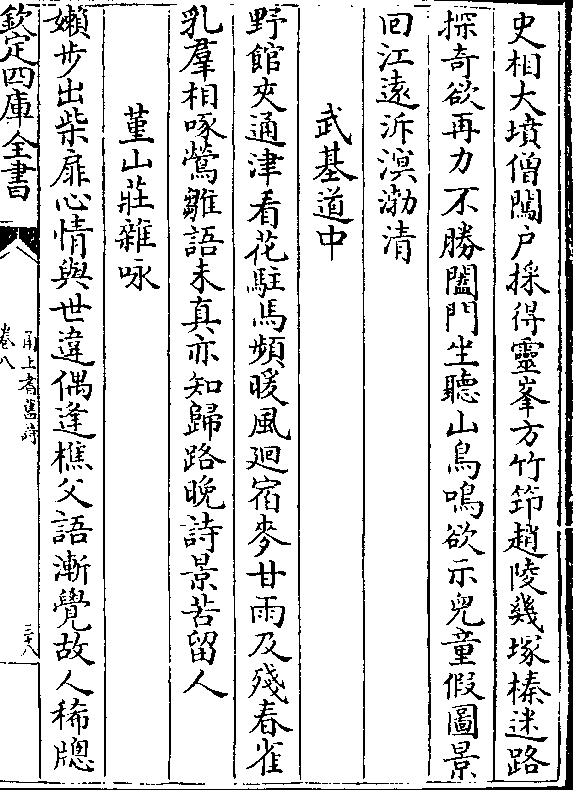 史相大墳僧闢户採得靈峯方竹筇趙陵幾塚榛迷路
探奇欲再力不勝闔門坐聽山鳥鳴欲示兒童假圖景
回江遠泝溟渤清
武基道中
野館夾通津看花駐馬頻暖風廻宿麥甘雨及殘春雀
乳羣相啄鶯雛語未真亦知歸路晚詩景苦留人
堇山莊雜咏
嬾步出柴扉心情與世違偶逢樵父語漸覺故人稀牕
欽定四庫全書
甬上耆舊詩
卷八
三十八